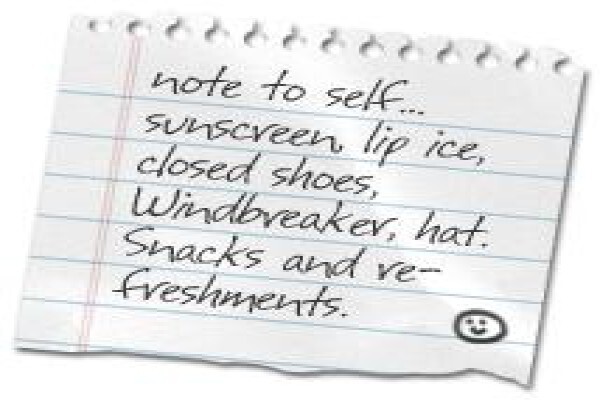 note to self...
sunscreen, lip ice,
closed shoes,
Windbreaker, hat.
Snacks and re-
freshments.